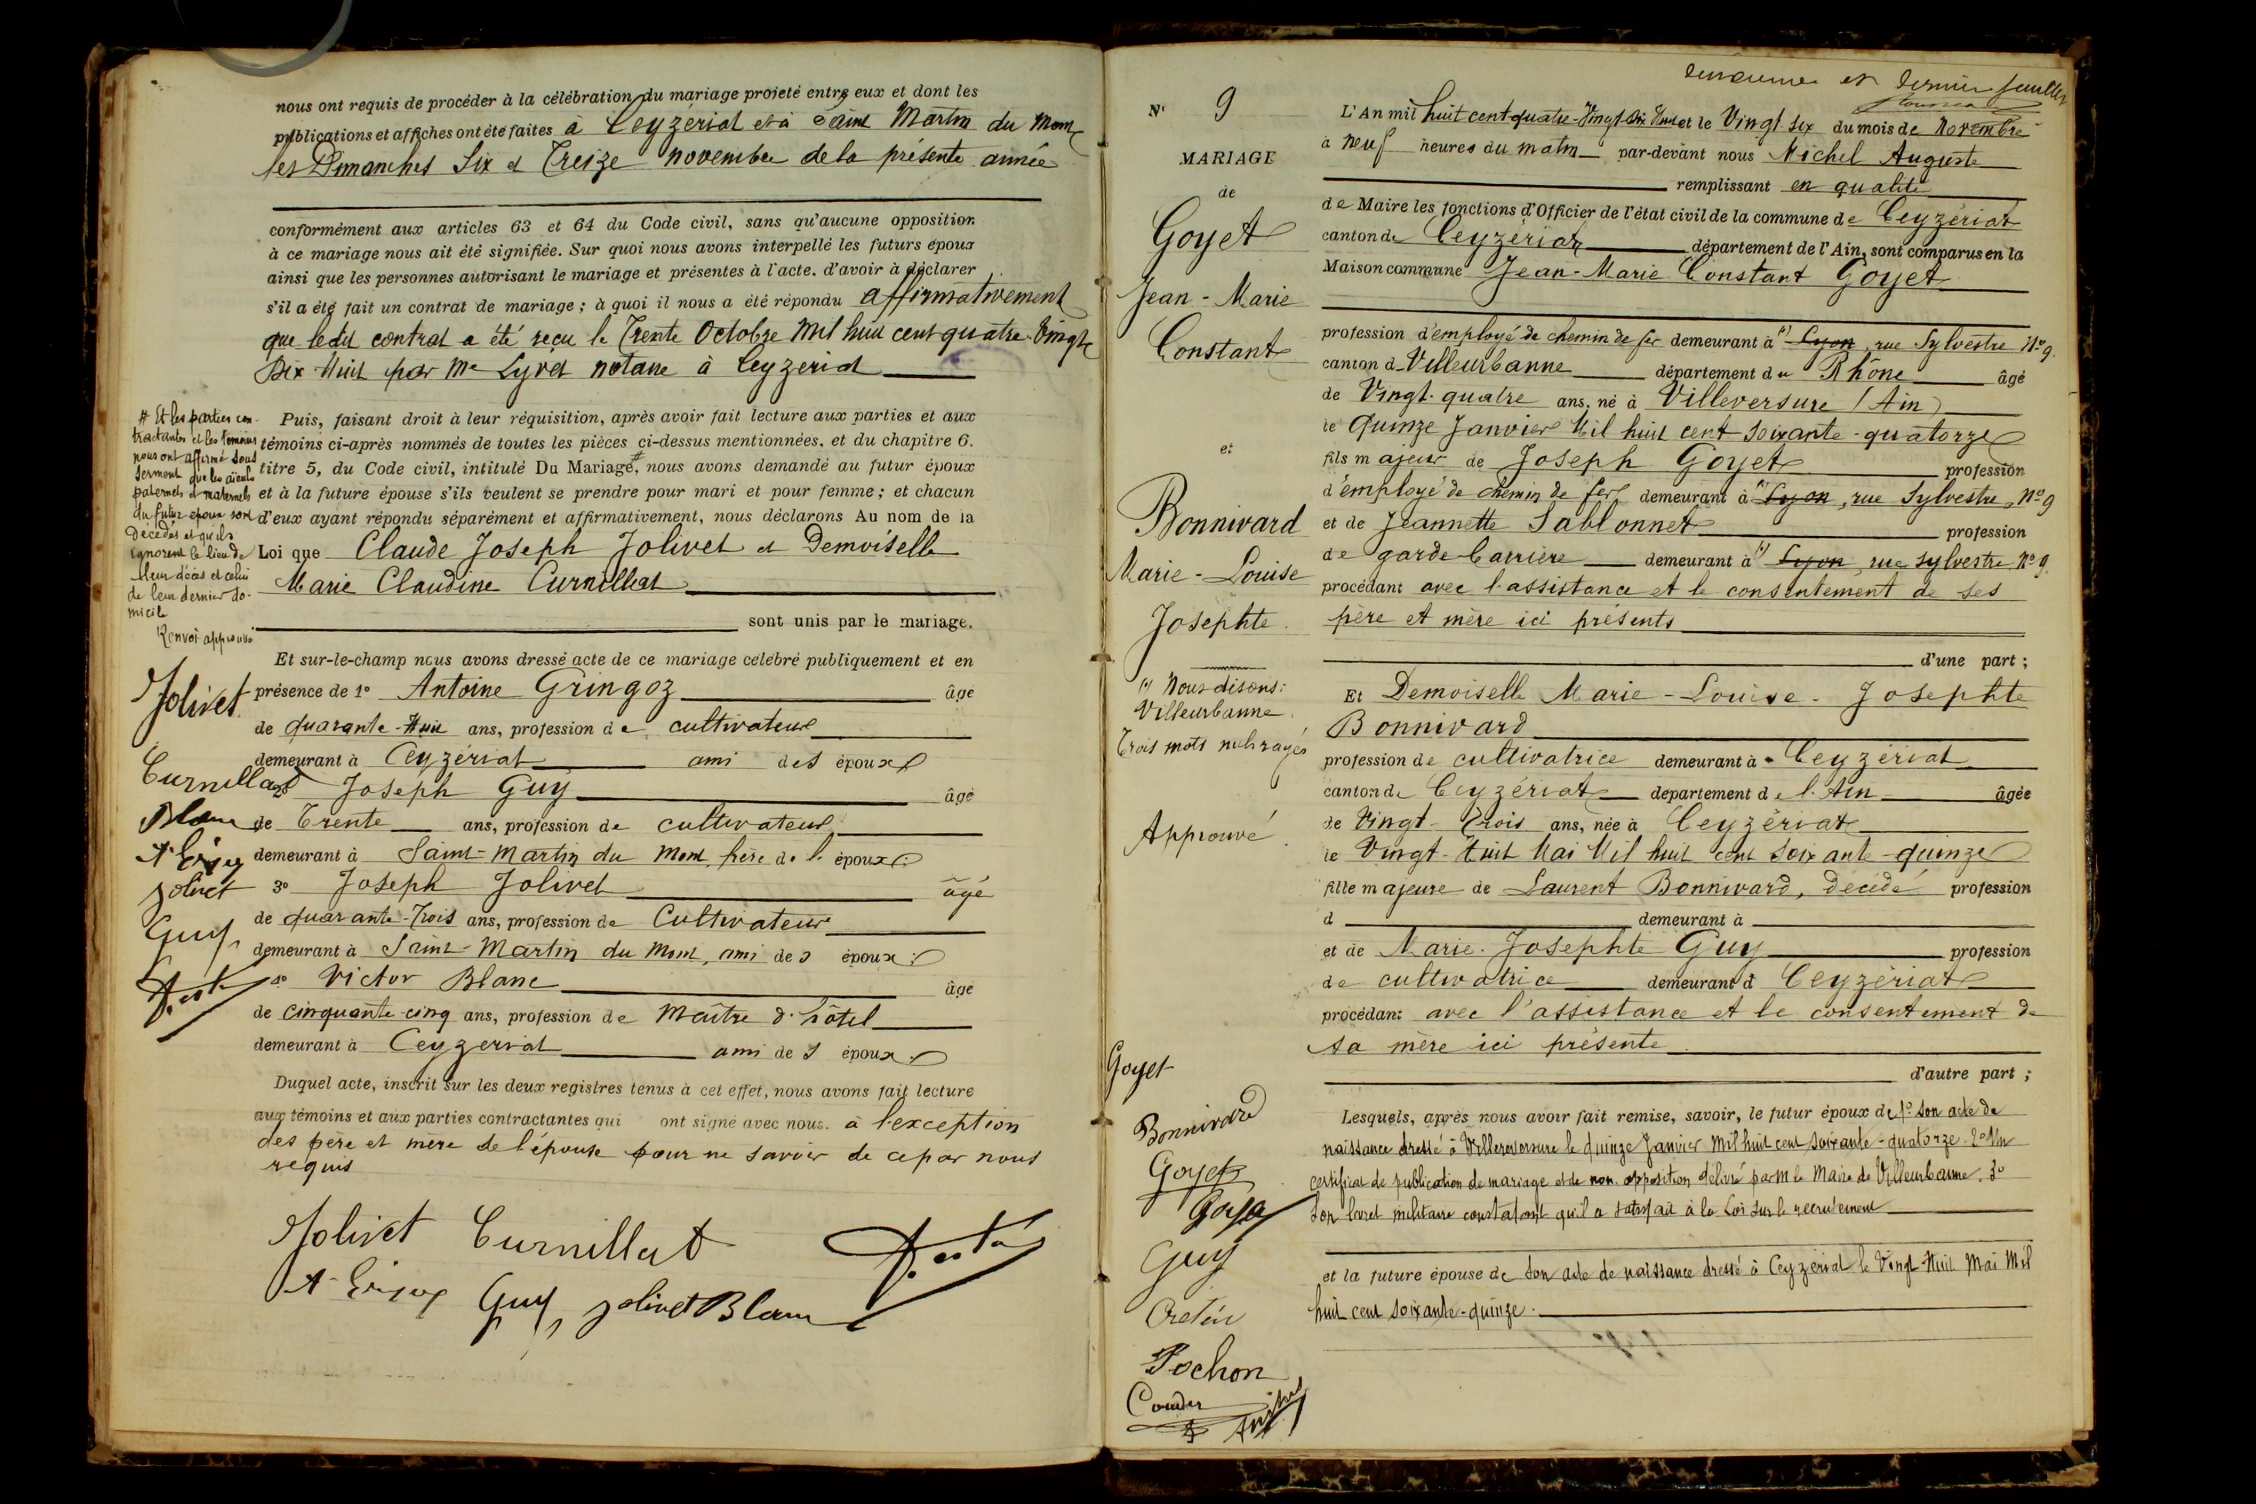 nous ont requis de procéder à la célébration du mariage projeté entre eux et dont les
publications et affiches ont été faites à Ceyzériat et à Saint Martin du Mont
les Dimanches Six et Treize novembre de la présente année
conformément aux articles 63 et 64 du Code civil, sans qu'aucune opposition
à ce mariage nous ait été signifiée. Sur quoi nous avons interpellé les futurs époux
ainsi que les personnes autorisant le mariage et présentes à l'acte, d'avoir à déclarer
s'il a été fait un contrat de mariage ; à quoi il nous a été répondu affirmativement
que ledit contrat a été reçu le Trente Octobre Mil huit cent quatre-Vingt
Dix-Huit par Me Lyvet notaire à Ceyzeriat
Puis, faisant droit à leur réquisition, après avoir fait lecture aux parties et aux
témoins ci-après nommés de toutes les pièces ci-dessus mentionnées, et du chapitre 6.
titre 5, du Code civil, intitulé Du Mariage, # nous avons demandé au futur époux
et à la future épouse s'ils veulent se prendre pour mari et pour femme ; et chacun
d'eux ayant répondu séparément et affirmativement, nous déclarons Au nom de la
Loi que Claude Joseph Jolivet et Demoiselle
Marie Claudine Curnillat
sont unis par le mariage.
# Et les parties con-
tractantes et les témoins
nous ont affirmé sous
serment que les aïeuls
paternels et maternels
du futur époux sont
Décédés et qu'ils
ignorent le lieu de
leur décès et celui
de leur dernier do-
micile
Renvoi approuvé
Et sur-le-champ nous avons dressé acte de ce mariage célébré publiquement et en
présence de 1° Antoine Gringoz âgé
de quarante-Huit ans, profession de cultivateur
demeurant à Ceyzériat ami des époux
Joseph Guy âgé
de Trente ans, profession de cultivateur
demeurant à Saint-Martin du Mont, frère de l' époux
3° Joseph Jolivet âgé
de quarante-Trois ans, profession de Cultivateur
demeurant à Saint-Martin du Mont, ami des époux
4° Victor Blanc âgé
de cinquante-cinq ans, profession de Maître d'hôtel
demeurant à Ceyzeriat ami des époux
Duquel acte, inscrit sur les deux registres tenus à cet effet, nous avons fait lecture
aux témoins et aux parties contractantes qui ont signé avec nous. à l'exception
des père et mère de l'épouse pour ne savoir de ce par nous
requis
Jolivet
Curnillat
Blanc
Jolivet
Guy
Jolivet Curnillat
Guy Jolivet Blanc
dernier feuillet
N° 9
MARIAGE
de
Goyet
Jean-Marie
Constant
et
Bonnivard
Marie-Louise
Josephte
(1) Nous disons:
Villeurbanne.
Trois mots nuls rayés
Approuvé
Goyet
Bonnivard
Goyet
Goyet
Guy
Cretin
Pochon
L'An mil huit cent quatre-Vingt-Dix Huit et le Vingt six du mois de Novembre
à neuf heures du matin par-devant nous Michel Auguste
remplissant en qualité
de Maire les fonctions d'Officier de l'état civil de la commune de Ceyzériat
canton de Ceyzériat département de l'Ain, sont comparus en la
Maison commune Jean-Marie Constant Goyet
profession d'employé de chemin de fer demeurant à (1) Lyon, rue Sylvestre No 9.
canton d Villeurbanne département du Rhône âgé
de Vingt-quatre ans, né à Villeversure (Ain)
le Quinze Janvier Mil huit cent soixante-quatorze
fils majeur de Joseph Goyet profession
d'employé de chemin de fer demeurant à (1) Lyon, rue Sylvestre, No 9
et de Jeannette Sablonnet profession
de garde barrière demeurant à (1) Lyon rue Sylvestre No 9
procédant avec l'assistance et le consentement de ses
père et mère ici présents
d'une part ;
Et Demoiselle Marie-Louise-Josephte
Bonnivard
profession de cultivatrice demeurant à Ceyzériat
canton de Ceyzériat département de l'Ain âgée
de Vingt-Trois ans, née à Ceyzériat
le Vingt-Huit Mai Mil huit cent soixante-quinze
fille majeure de Laurent Bonnivard, décédé profession
d demeurant à
et de Marie-Josephte Guy profession
de cultivatrice demeurant à Ceyzériat
procédant avec l'assistance et le consentement de
sa mère ici présente
d'autre part ;
Lesquels, après nous avoir fait remise, savoir, le futur époux de 1° son acte de
naissance dressé à Villereversure le quinze Janvier Mil huit cent soixante-quatorze 2° Un
certificat de publication de mariage et de non opposition délivré par M le Maire de Villeurbanne. 3°
Son livret militaire constatant qu'il a satisfait à la Loi sur le recrutement
et la future épouse de Son acte de naissance dressé à Ceyzériat le Vingt-Huit Mai Mil
huit cent soixante-quinze.